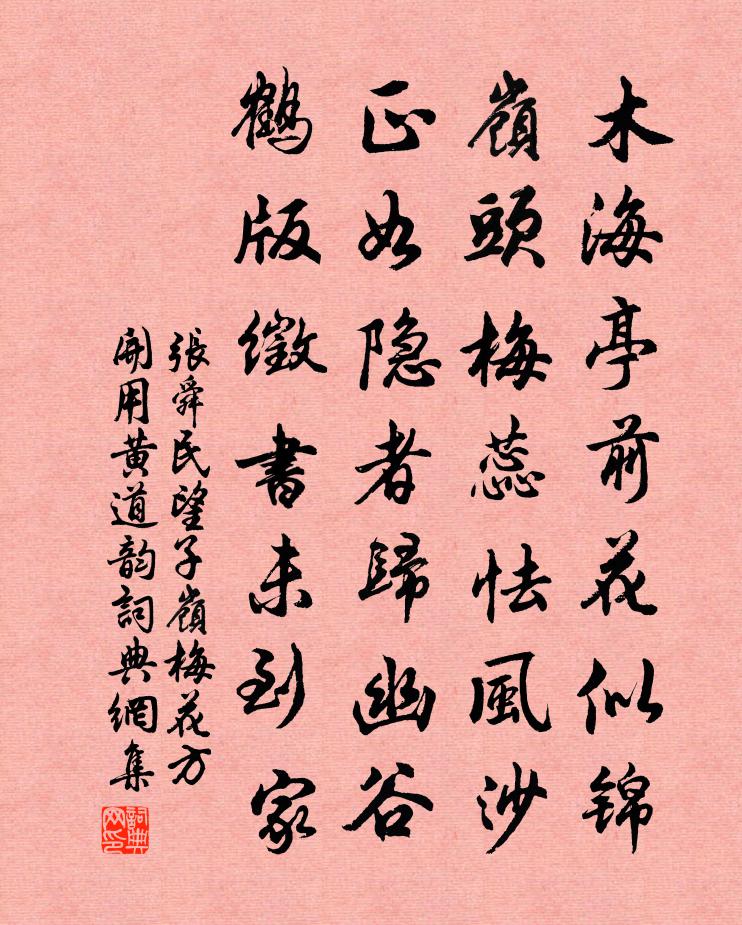 木海亭前花似錦
嶺頭梅蕊怯風沙
正如隐者歸幽谷
鶴版徵書未到家
張舜民望子嶺梅花方
開用黄道韵詞典網集
詞典网印